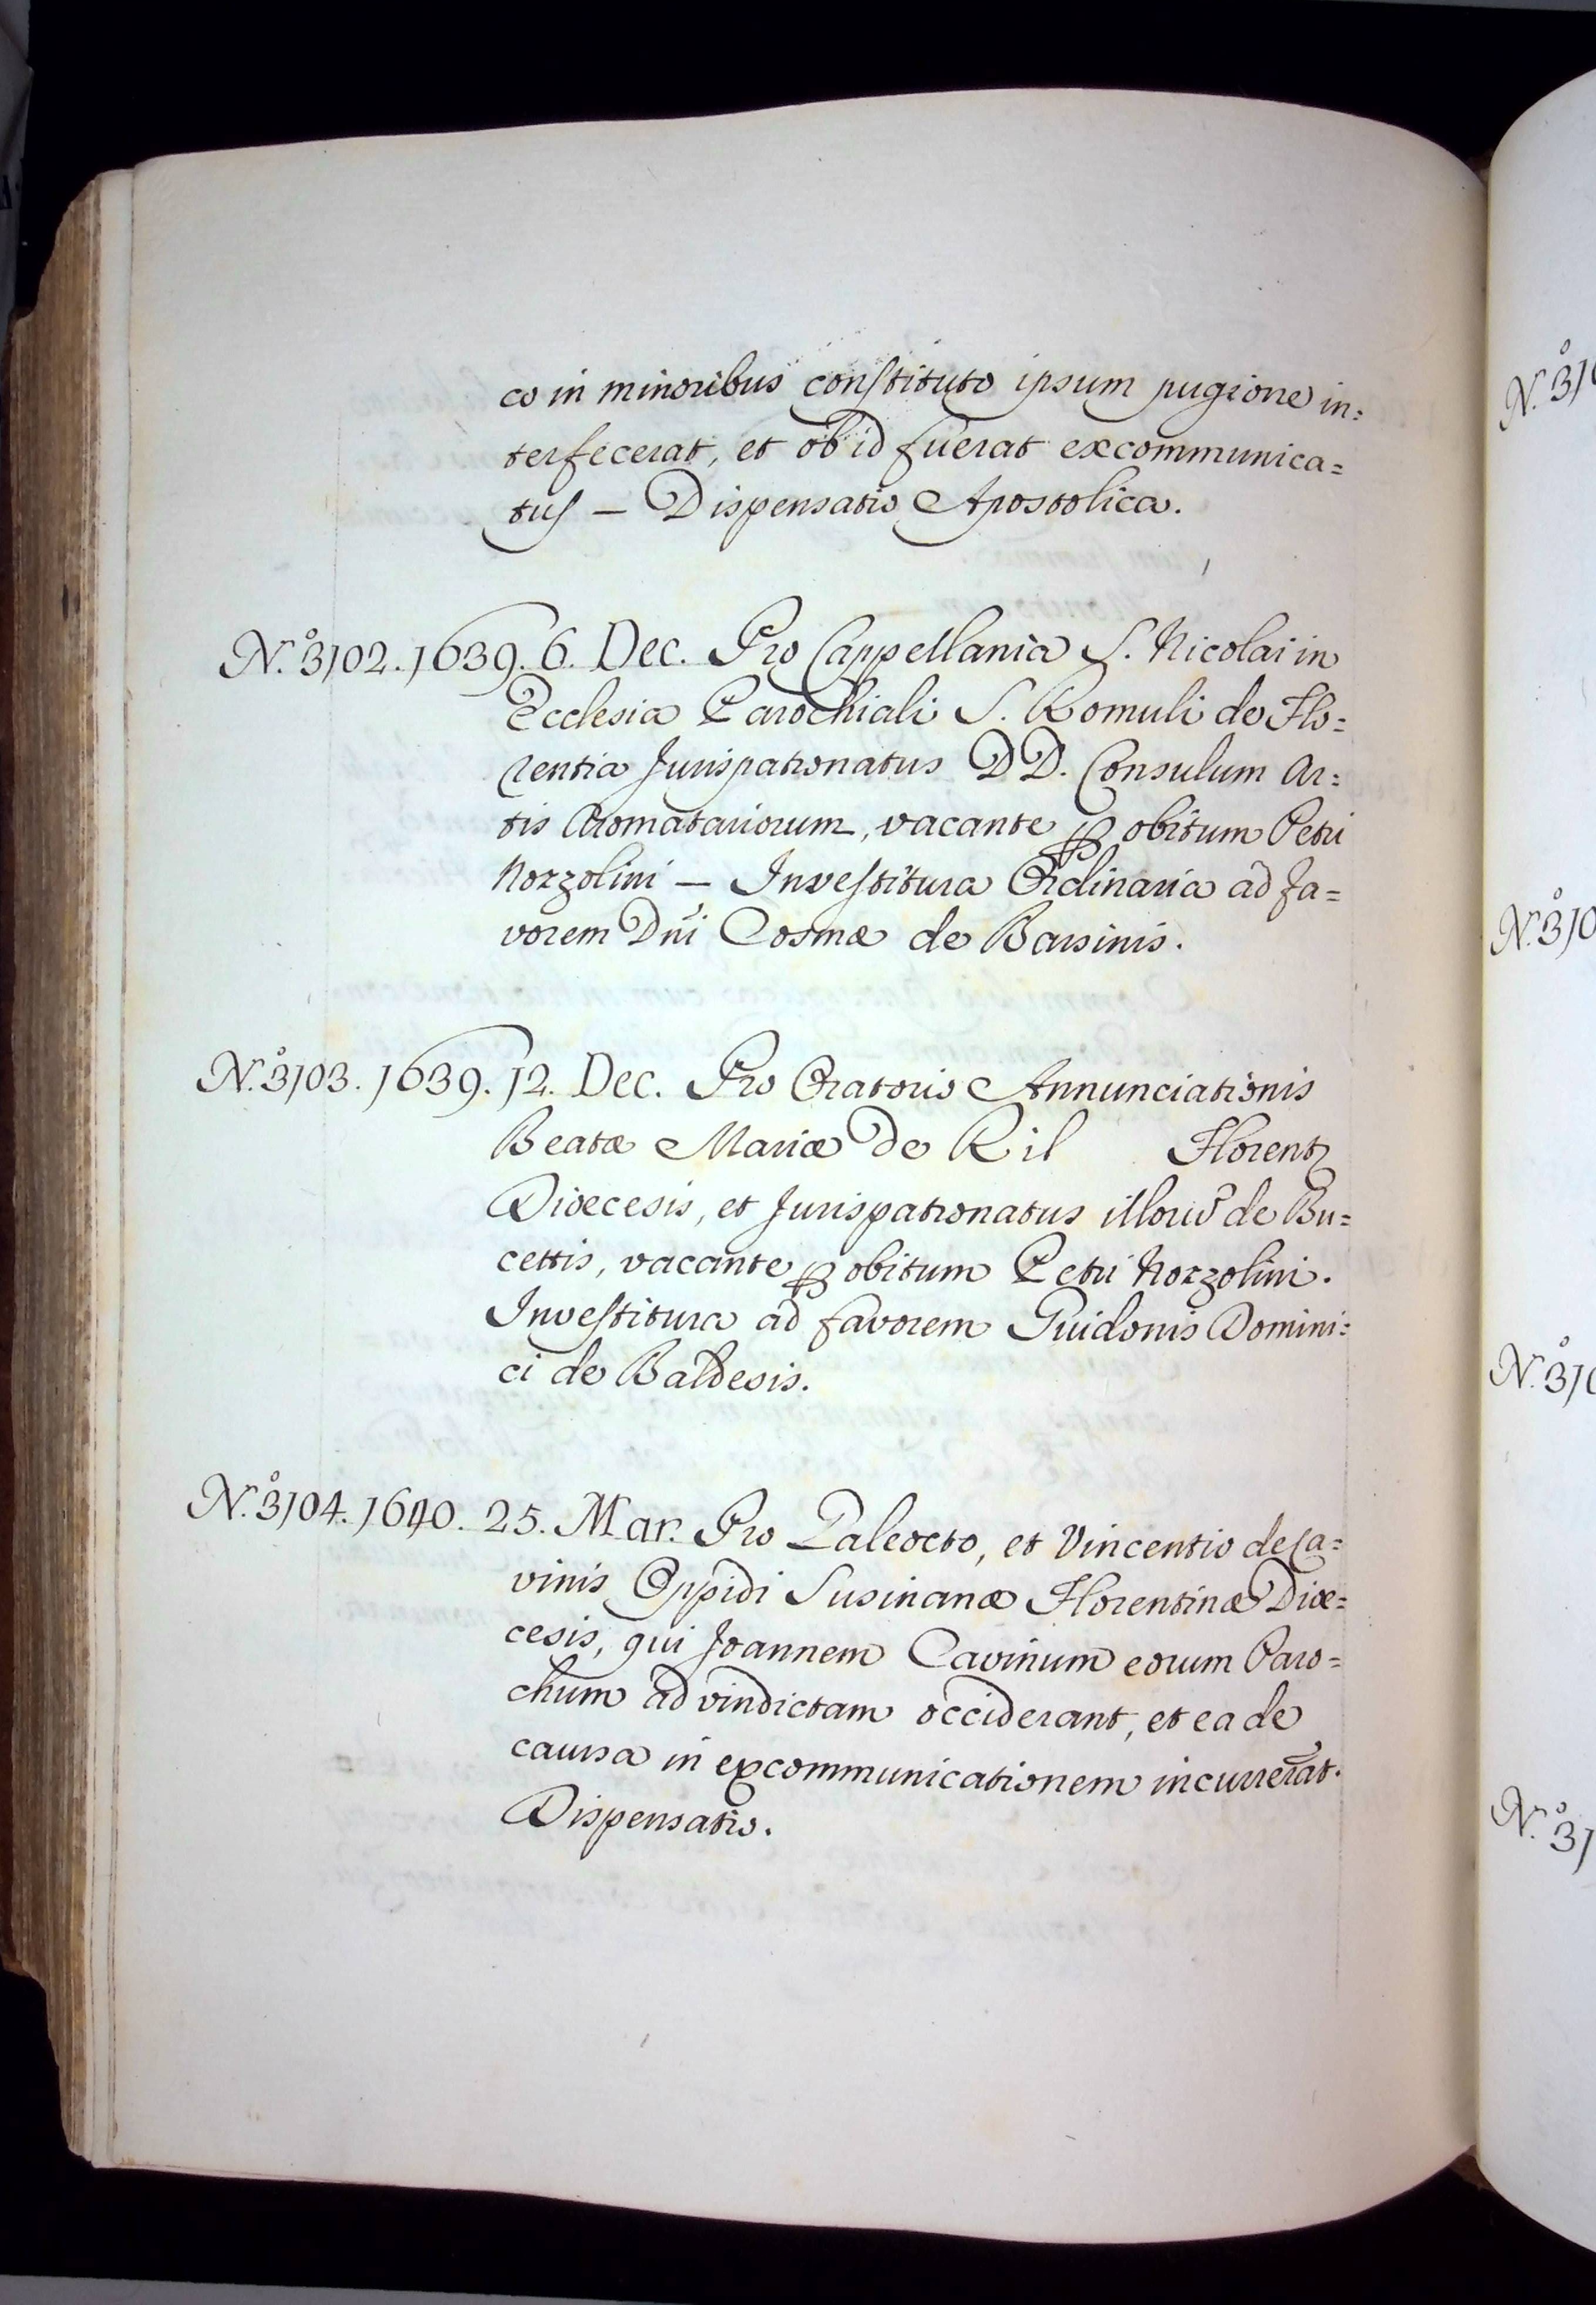 co in minoribus constituto ipsum pugione in=
terfecerat, et ob id fuerat excommunica=
tus — Dispensatio Apostolica.
N.º 3102. 1639. 6. Dec. Pro Cappellania S. Nicolai in
Ecclesia Parochiali S. Romuli de Flo=
rentia Jurispatronatus DD. Consulum Ar=
tis Aromatariorum, vacante ꝑ obitum Petri
Nozzolini — Investitura Ordinaria ad fa=
vorem Dñi Cosmæ de Barsinis.
N.º 3103. 1639. 12. Dec. Pro Oratorio Annunciationis
Beatæ Mariæ de Ril Florent
Diœcesis, et Jurispatronatus illorũ de Bu=
cettis, vacante ꝑ obitum Petri Nozzolini.
Investitura ad favorem Guidonis Domini=
ci de Baldesis.
N.º 3104. 1640. 25. Mar. Pro Galeocto, et Vincentio de Ca=
vinis Oppidi Susinanæ Florentinæ Diœ=
cesis, qui Joannem Cavinum eorum Paro=
chum ad vindictam occiderant, et ea de
caussa in excommunicationem incurrerãt.
Dispensatio.
N.º 31
N.º 310
N.º 310
N.º 31